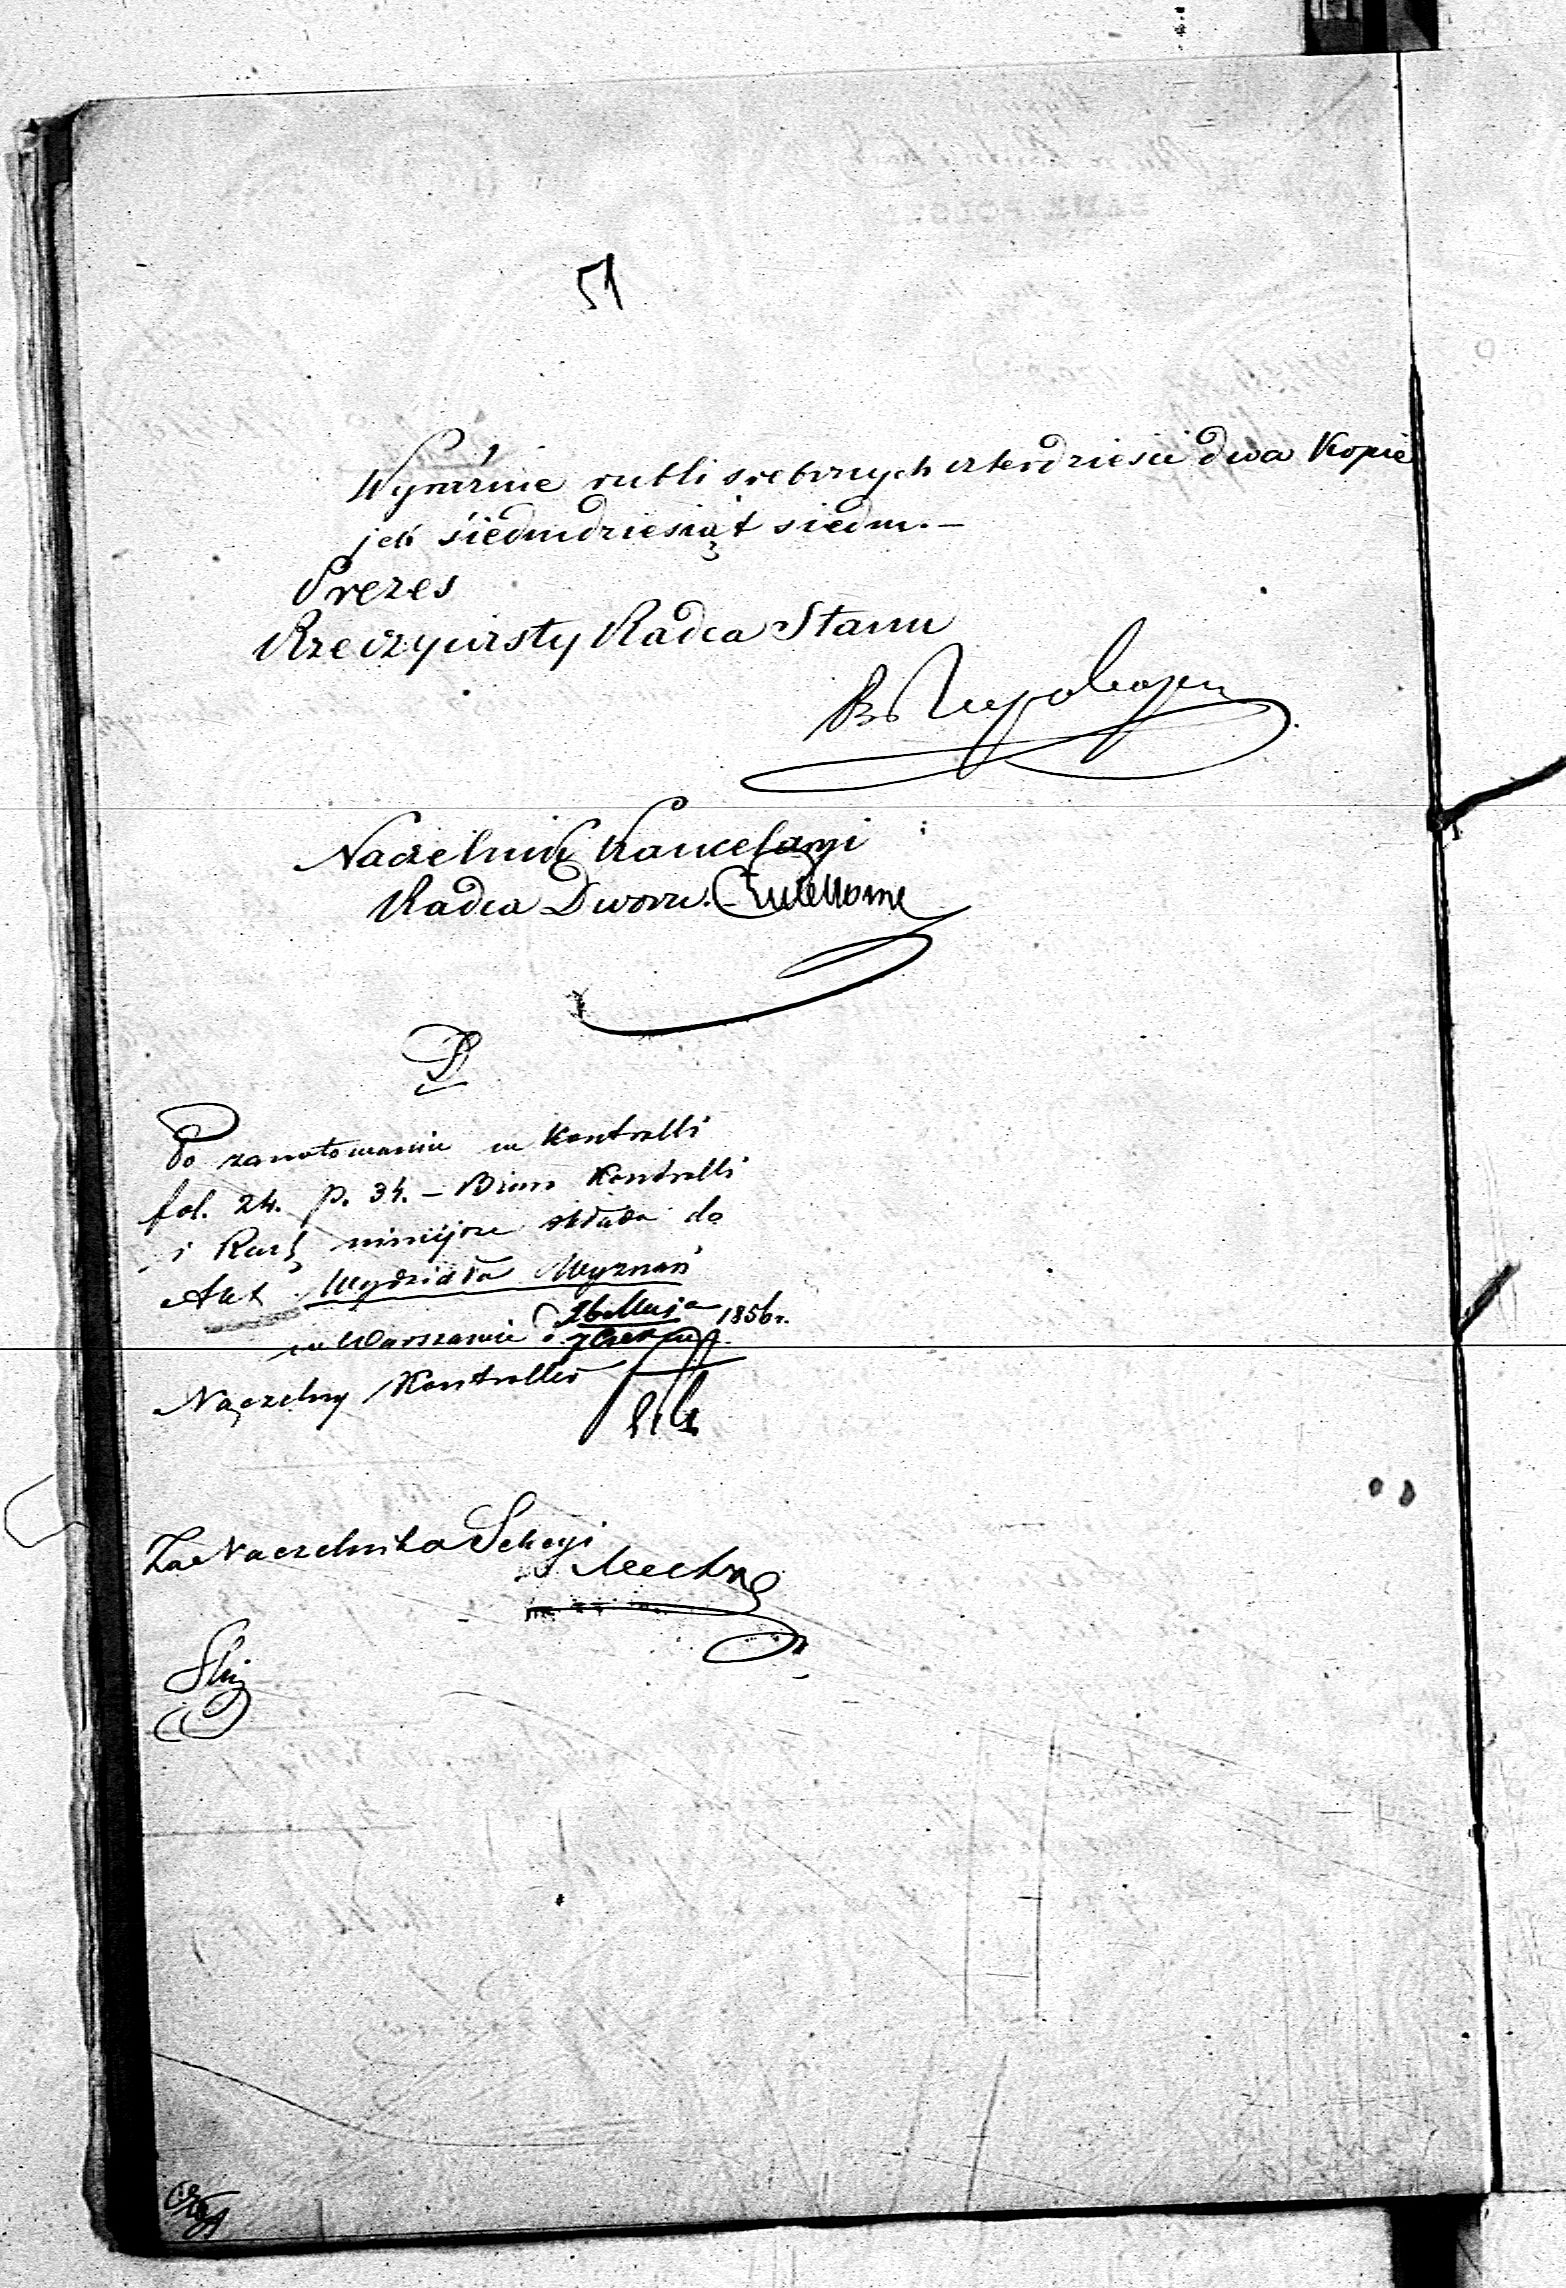 51
Wyraźnie rubli srebrnych czterdzieści dwa Kopie
jek siedmdziesiąt siedm. –
Prezes
Rzeczywisty Radca Stanu
Naczelnik Kancelaryi
Radca Dworu.
Po zanotowaniu w Kontrolli
fol. 24. p. 34. – Biuro Kontrolli
i Rach. niniejsze składa do
Akt Wydziału Wyznań
w Warszawie d. 26 Maja 1856 r.
7 Czerwca
Naczelny Kontroller
Za Naczelnika Sekcyi